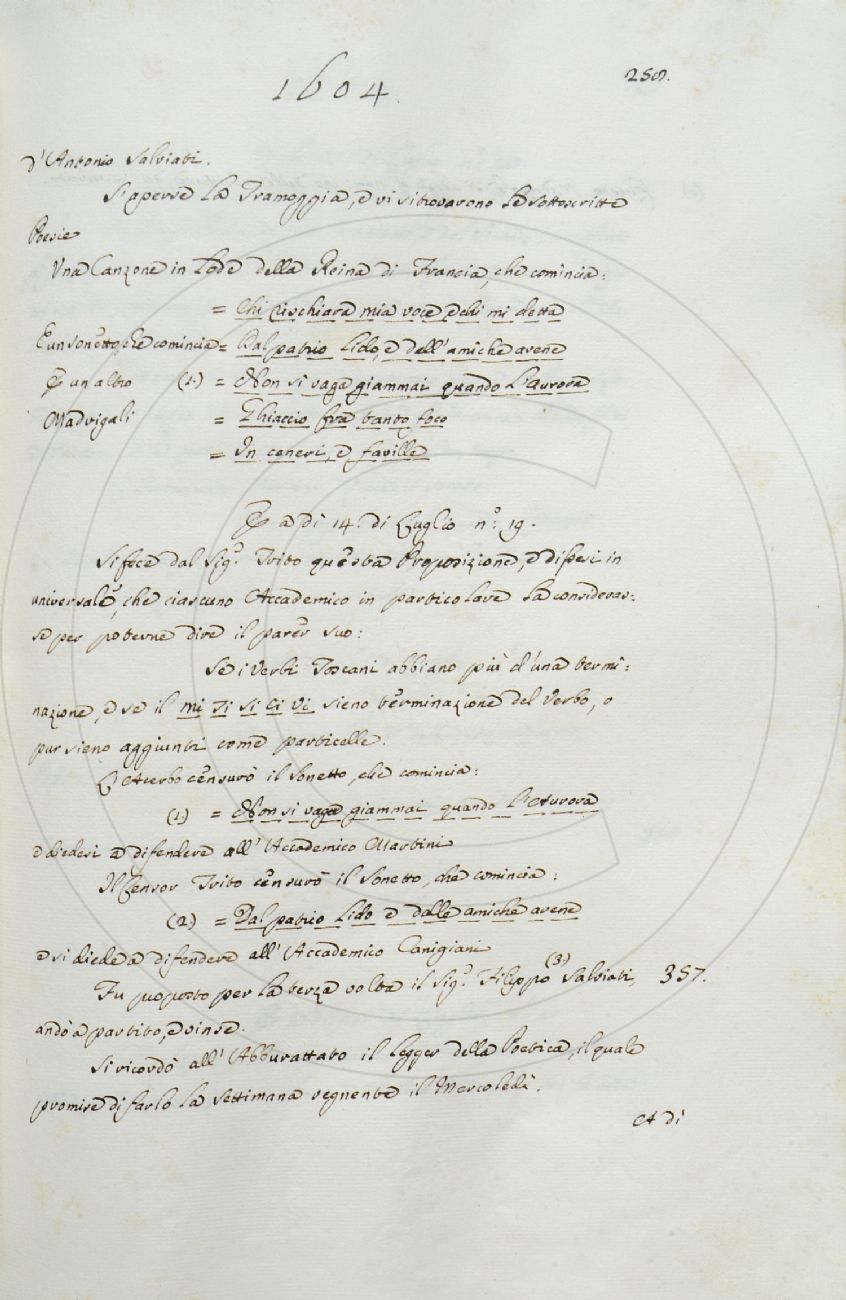 1604.
259.
d'Antonio Salviati.
S'aperse la Tramoggia, e vi si trovarono le sottoscritte
Poesie
Una Canzone in lode della Reina di Francia, che comincia:
= Chi rischiara mia voce, e chi mi detta
E un sonetto, che comincia = Dal patrio Lido, e dall'amiche arene
E un altro (1.) = Non si vaga giammai quando l'Aurora
Madrigali = Ghiaccio fra tanto foco
= In ceneri, e faville
E a dì 14. di Luglio n.o: 19.
Si fece dal Sig.r Trito questa Proposizione, e dissesi in
universale, che ciascuno Accademico in particolare la consideras:
se per poterne dire il parer suo:
Se i Verbi Toscani abbiano più d'una termi:
nazione, e se il mi Ti si Ci Vi sieno terminazione del Verbo, o
pur sieno aggiunti come particelle.
L'Acerbo censurò il Sonetto, che comincia:
(1) = Non si vaga giammai quando l'Aurora
e diedesi a difendere all'Accademico Martini
Il Censor Trito censurò il Sonetto, che comincia:
(2) = Dal patrio Lido e dalle amiche arene
e si diede a difendere all'Accademico Canigiani
Fu proposto per la terza volta il Sig.r Filippo (3) Salviati, 357.
andò a partito, e vinse.
Si ricordò all'Abburattato il legger della Poetica, il quale
promise di farlo la settimana vegnente il Mercoledì.
A dì